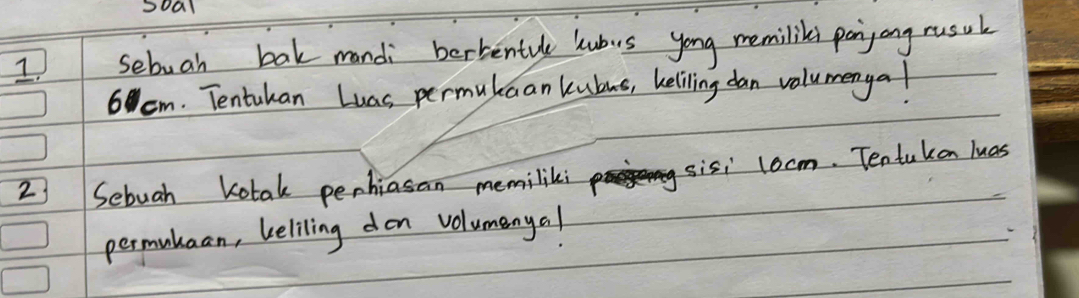 Soal
1. Sebuah bak mandi berbentuk kubus yang memiliki panjang rusuk
60cm. Tentukan Luas permukaan kubus, keliling dan volumenya!
2) Sebuah Kotak perhiasan memiliki sisi 10cm. Tentukan luas
permukaan, keliling dan volumenya!